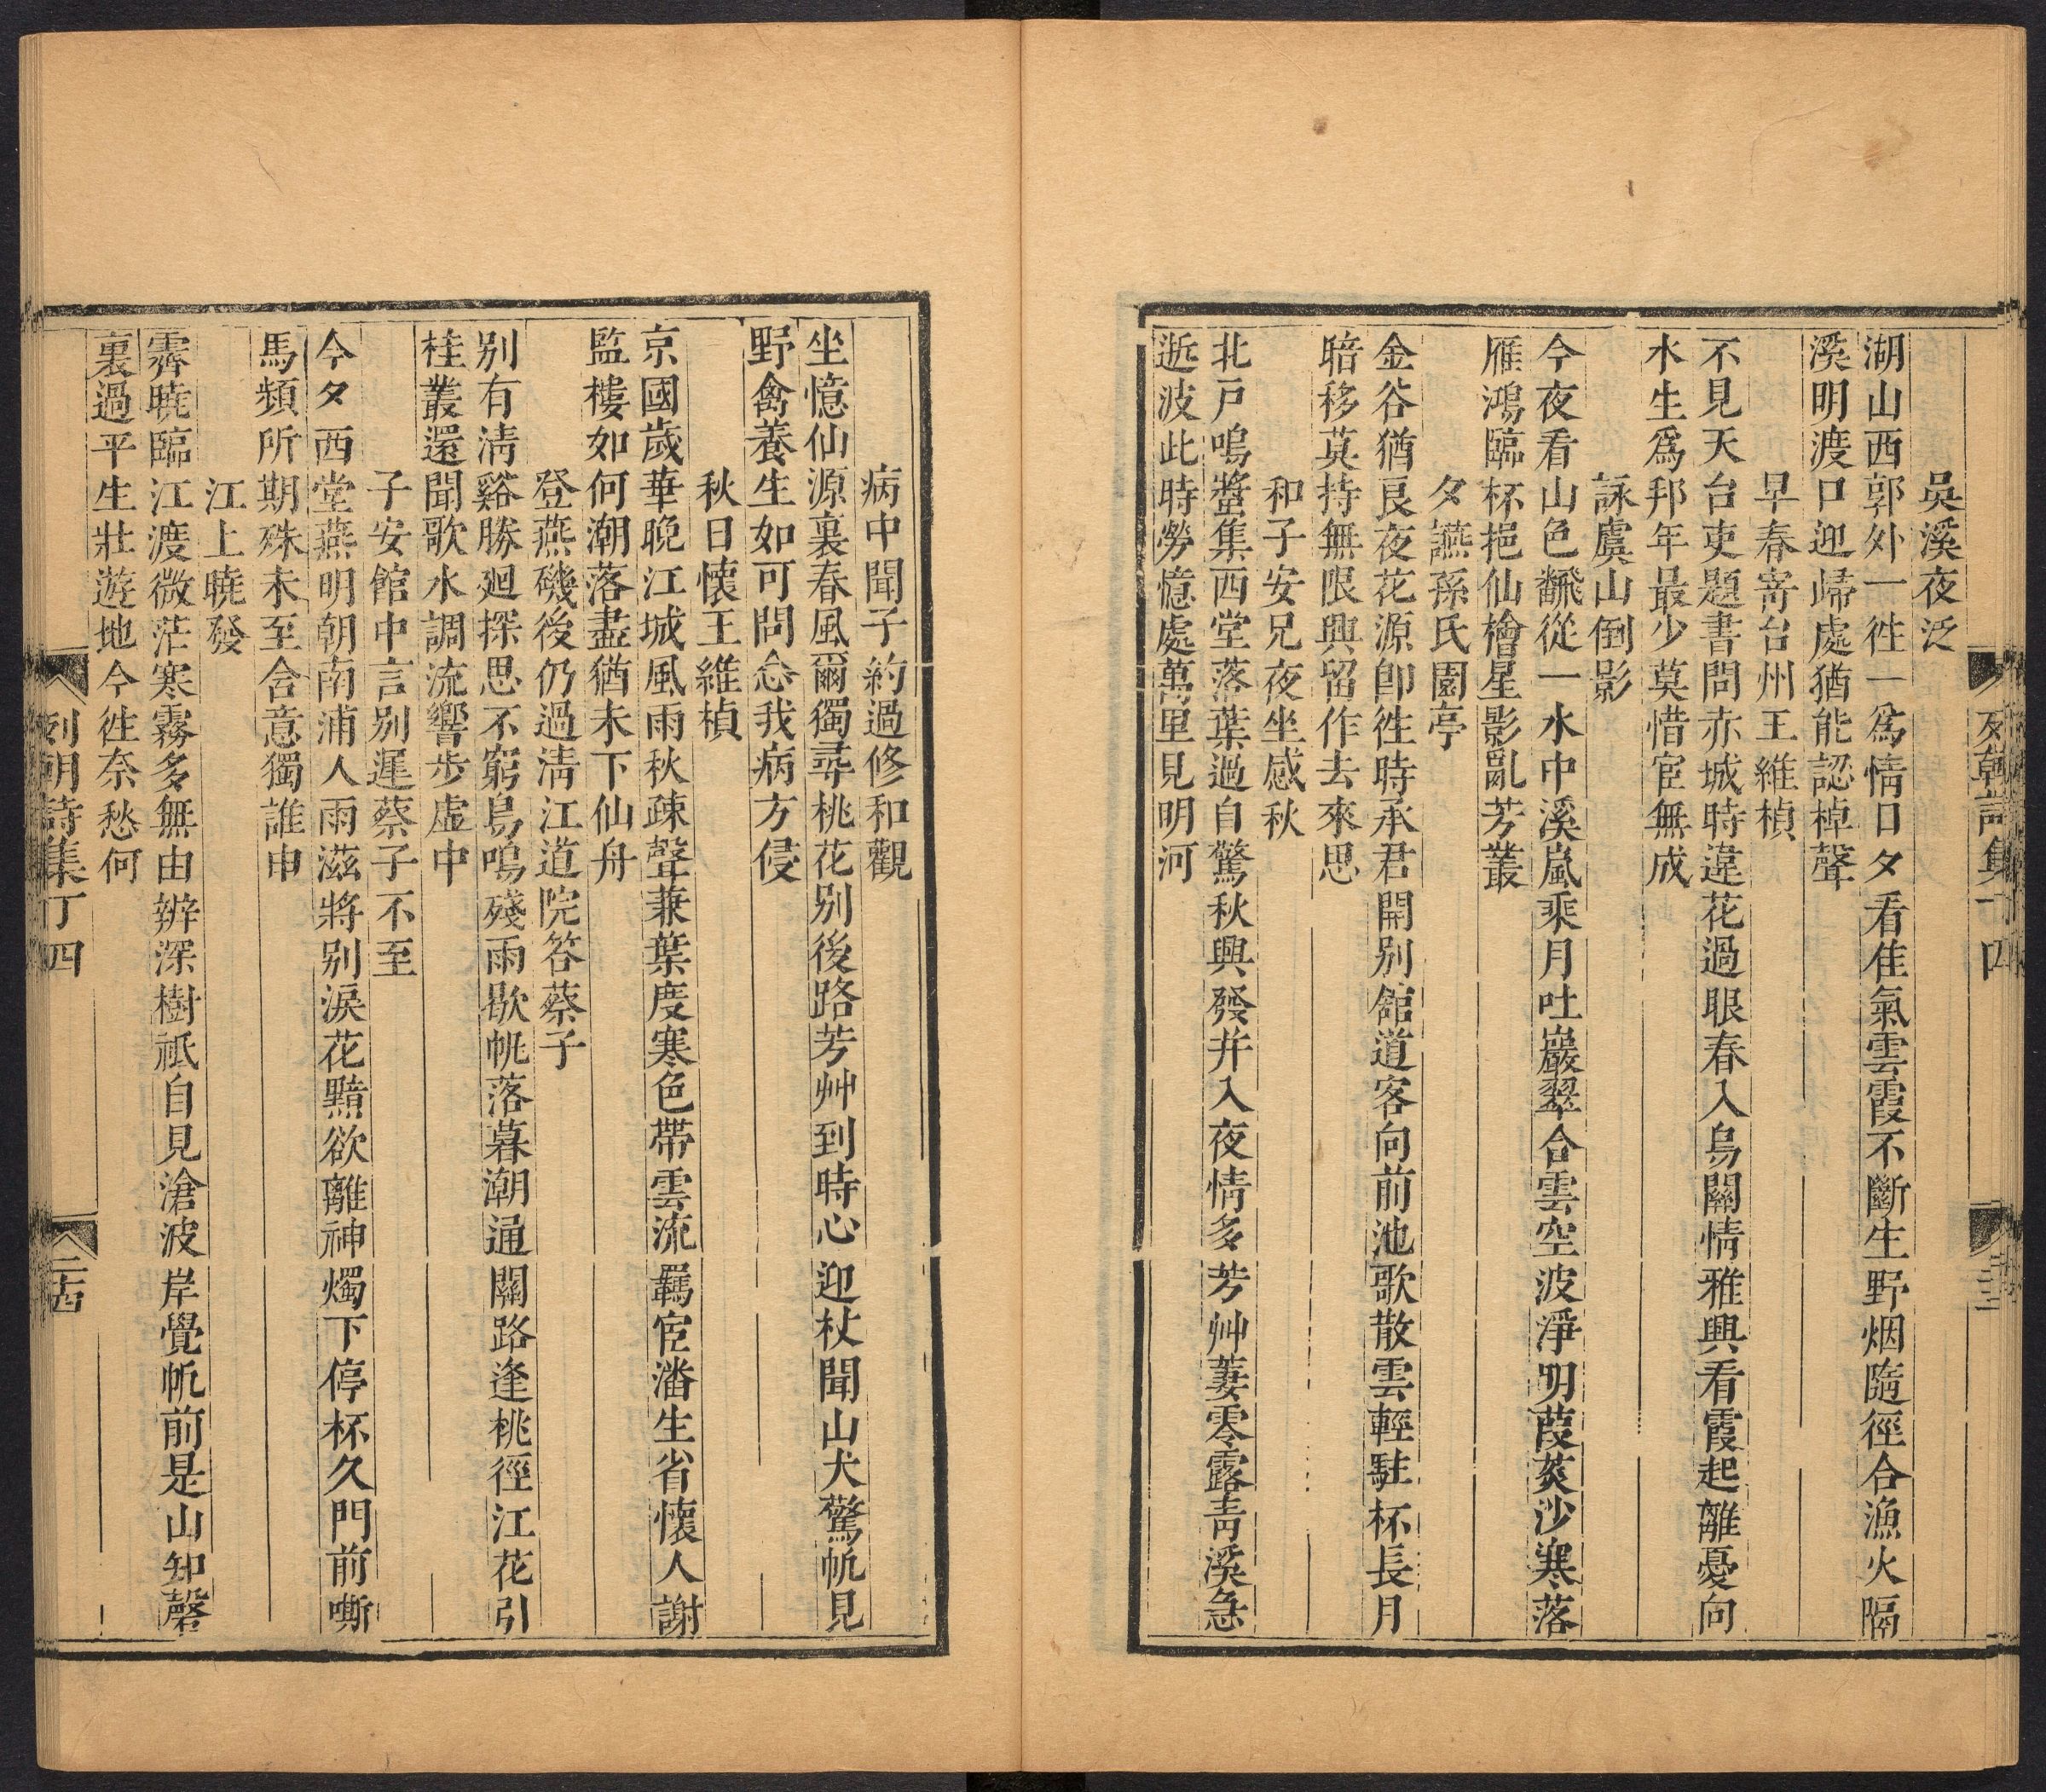 吳溪夜泛
湖山西郭外一徃一爲情日夕看佳氣雲霞不斷生野烟隨徑合漁火隔
溪明渡口迎歸處猶能認棹聲
早春寄台州王維楨
不見天台吏題書問赤城時違花過眼春入鳥關情雅興看霞起離憂向
水生爲邦年最少莫惜宦無成
詠虞山倒影
今夜看山色飜從一水中溪嵐乘月吐巖翠合雲空波淨明葭菼沙寒落
雁鴻臨杯挹仙檜星影亂芳叢
夕讌孫氏園亭
金谷猶良夜花源卽徃時承君開別館道客向前池歌散雲輕駐杯長月
暗移莫持無限興留作去來思
和子安兄夜坐感秋
北戸鳴蛩集西堂落葉過自驚秋興發幷入夜情多芳艸萋零露靑溪急
逝波此時勞憶處萬里見明河
列朝詩集丁四
二十三
病中聞子約過修和觀
坐憶仙源裏春風爾獨尋桃花別後路芳艸到時心迎杖聞山犬驚帆見
野禽養生如可問念我病方侵
秋日懷王維楨
京國歲華晚江城風雨秋疎聲兼葉度寒色帶雲流羈宦潘生省懷人謝
監樓如何潮落盡猶未下仙舟
登燕磯後仍過淸江道院答蔡子
別有淸谿勝廻探思不窮鳥鳴殘雨歇帆落暮潮通關路逢桃徑江花引
桂叢還聞歌水調流響步虛中
子安館中言別遲蔡子不至
今夕西堂燕明朝南浦人雨滋將別淚花黯欲離神燭下停杯久門前嘶
馬頻所期殊未至含意獨誰申
江上曉發
霽曉臨江渡微茫寒霧多無由辨深樹祗自見滄波岸覺帆前是山知磬
裏過平生壯遊地今徃奈愁何
列朝詩集丁四
二十四